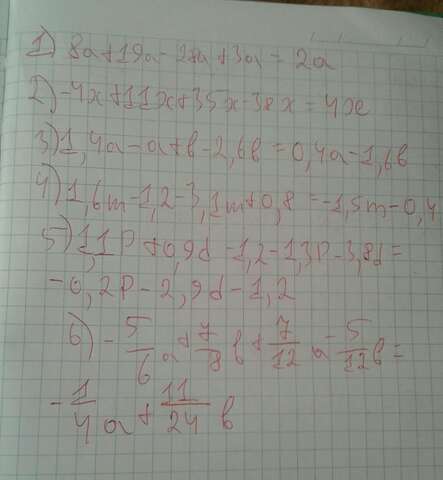 1) 8a+19a-28a+3a=2a
2) -4x+11x+35x-38x=4x
3) 1,4a-a+b-2,6b=0,4a-1,6b
4) 1,6m-1,2-3,1m+0,8=-1,5m-0,4
5) 1,1P+0,9d-1,2-1,3P-3,8d=
-0,2P-2,9d-1,2
6) -5/6a+7/8b+7/12a-5/12b=
-1/4a+11/24b